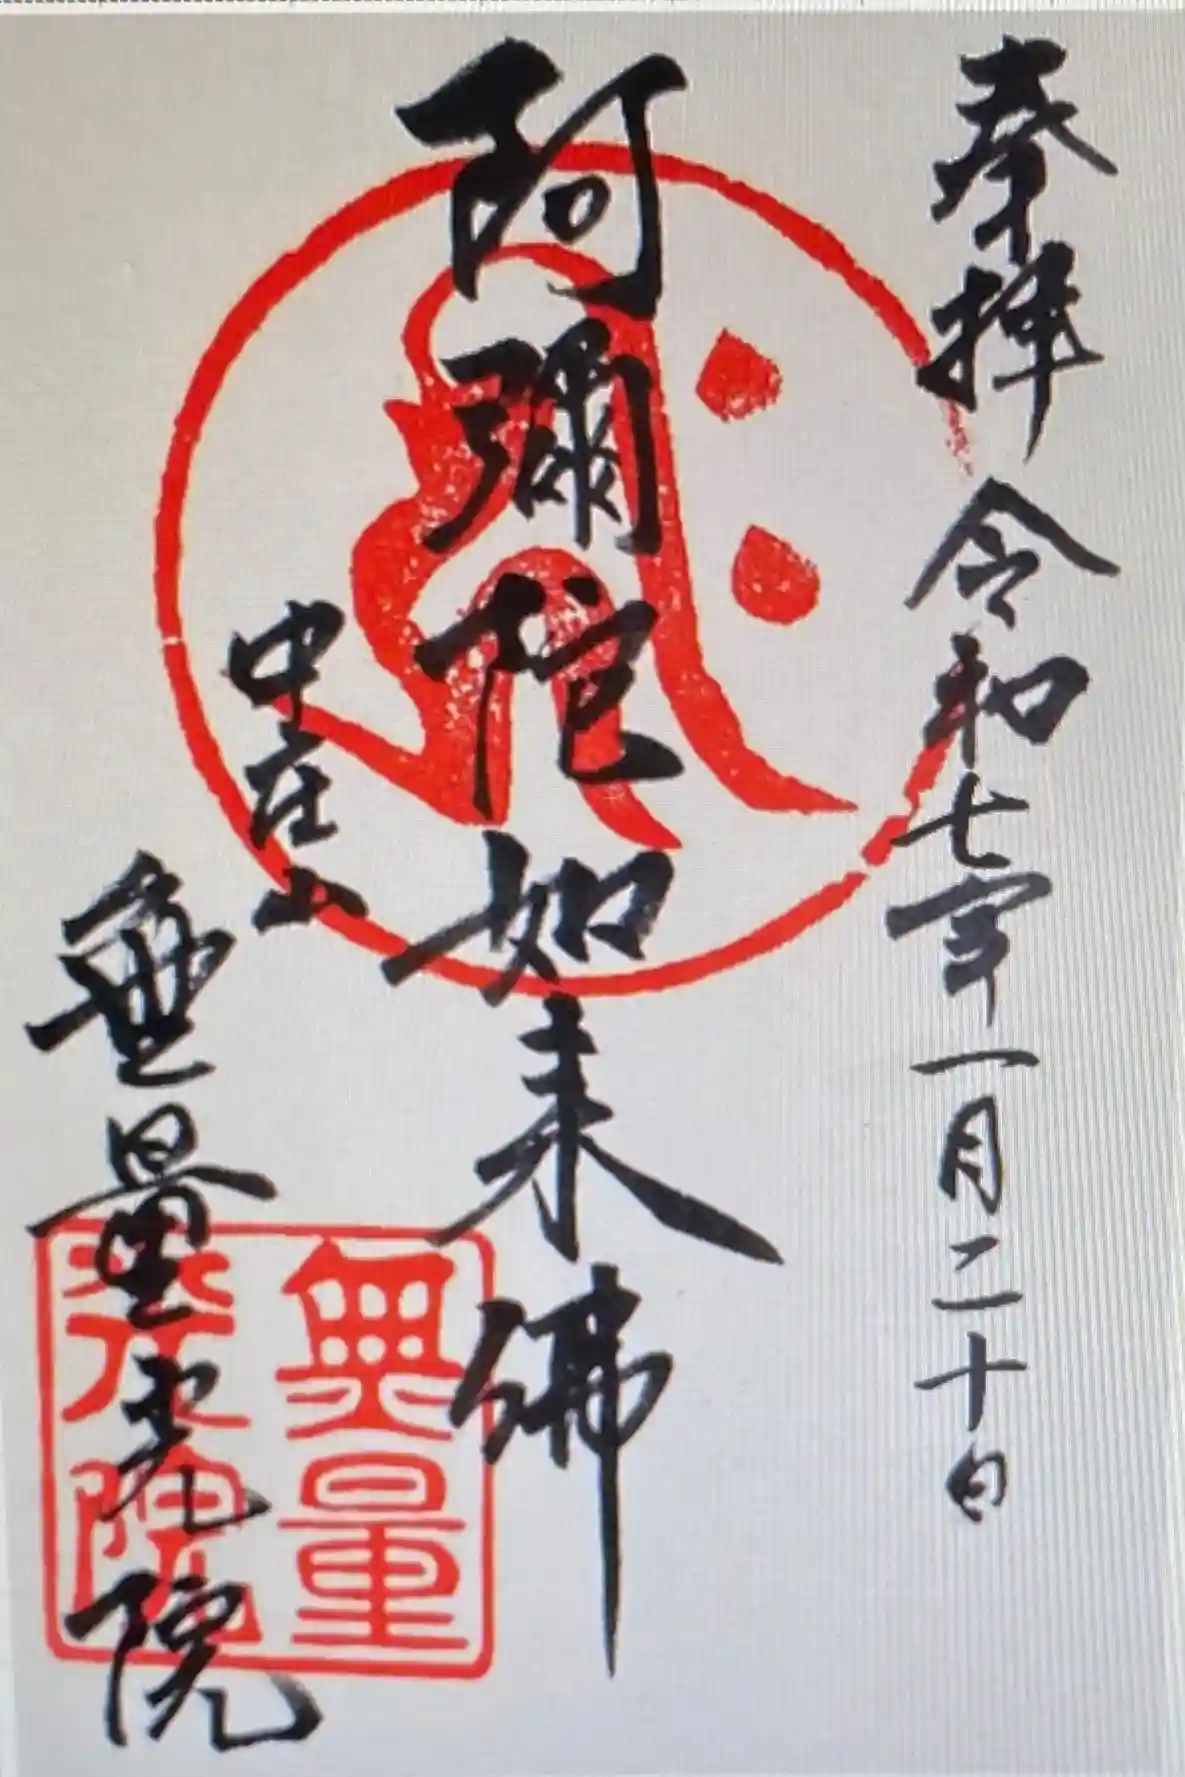 奉拝 令和七年一月二十日
阿彌陀如来佛
中庄山
無量光院
無量
光院